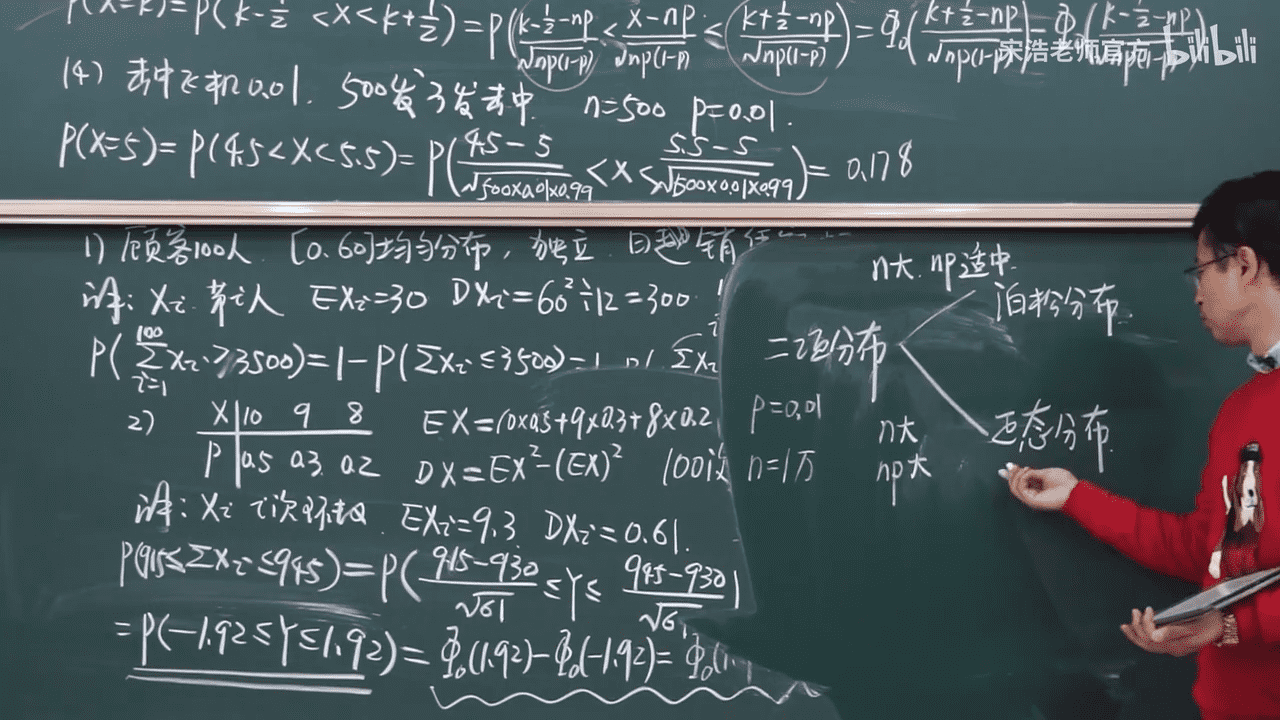 P(X=k)=P(k-½<X<k+½)=P((k-½-np)/√np(1-p) < (X-np)/√np(1-p) ≤ (k+½-np)/√np(1-p))=Φ₀((k+½-np)/√np(1-p))-Φ₀((k-½-np)/√np(1-p))
宋浩老师官方 bilibili
(4) 击中飞机0.01. 500发 5发击中. n=500 p=0.01.
P(X=5)=P(4.5<X<5.5)=P((4.5-5)/√500×0.01×0.99 <X≤ (5.5-5)/√500×0.01×0.99)=0.178
1) 顾客100人. [0.60]均匀分布, 独立. 日 销
译: Xi 第i人 EXi=30 DXi=60²÷12=300.
P(∑_{i=1}^{100} Xi>3500)=1-P(∑Xi≤3500)=1-P( ∑Xi
2) X 10 9 8 EX=10×0.5+9×0.3+8×0.2
P 0.5 0.3 0.2 DX=EX²-(EX)² 100
Xi i次环数. EXi=9.3 DXi=0.61.
P(915≤∑Xi≤945)=P((915-930)/√61 ≤Y≤ (945-930)/√61)
=P(-1.92≤Y≤1.92)=Φ₀(1.92)-Φ₀(-1.92)=Φ₀(1.
n大. np适中.
泊松分布.
二项分布
p=0.01
n大
正态分布.
n=1万
np大